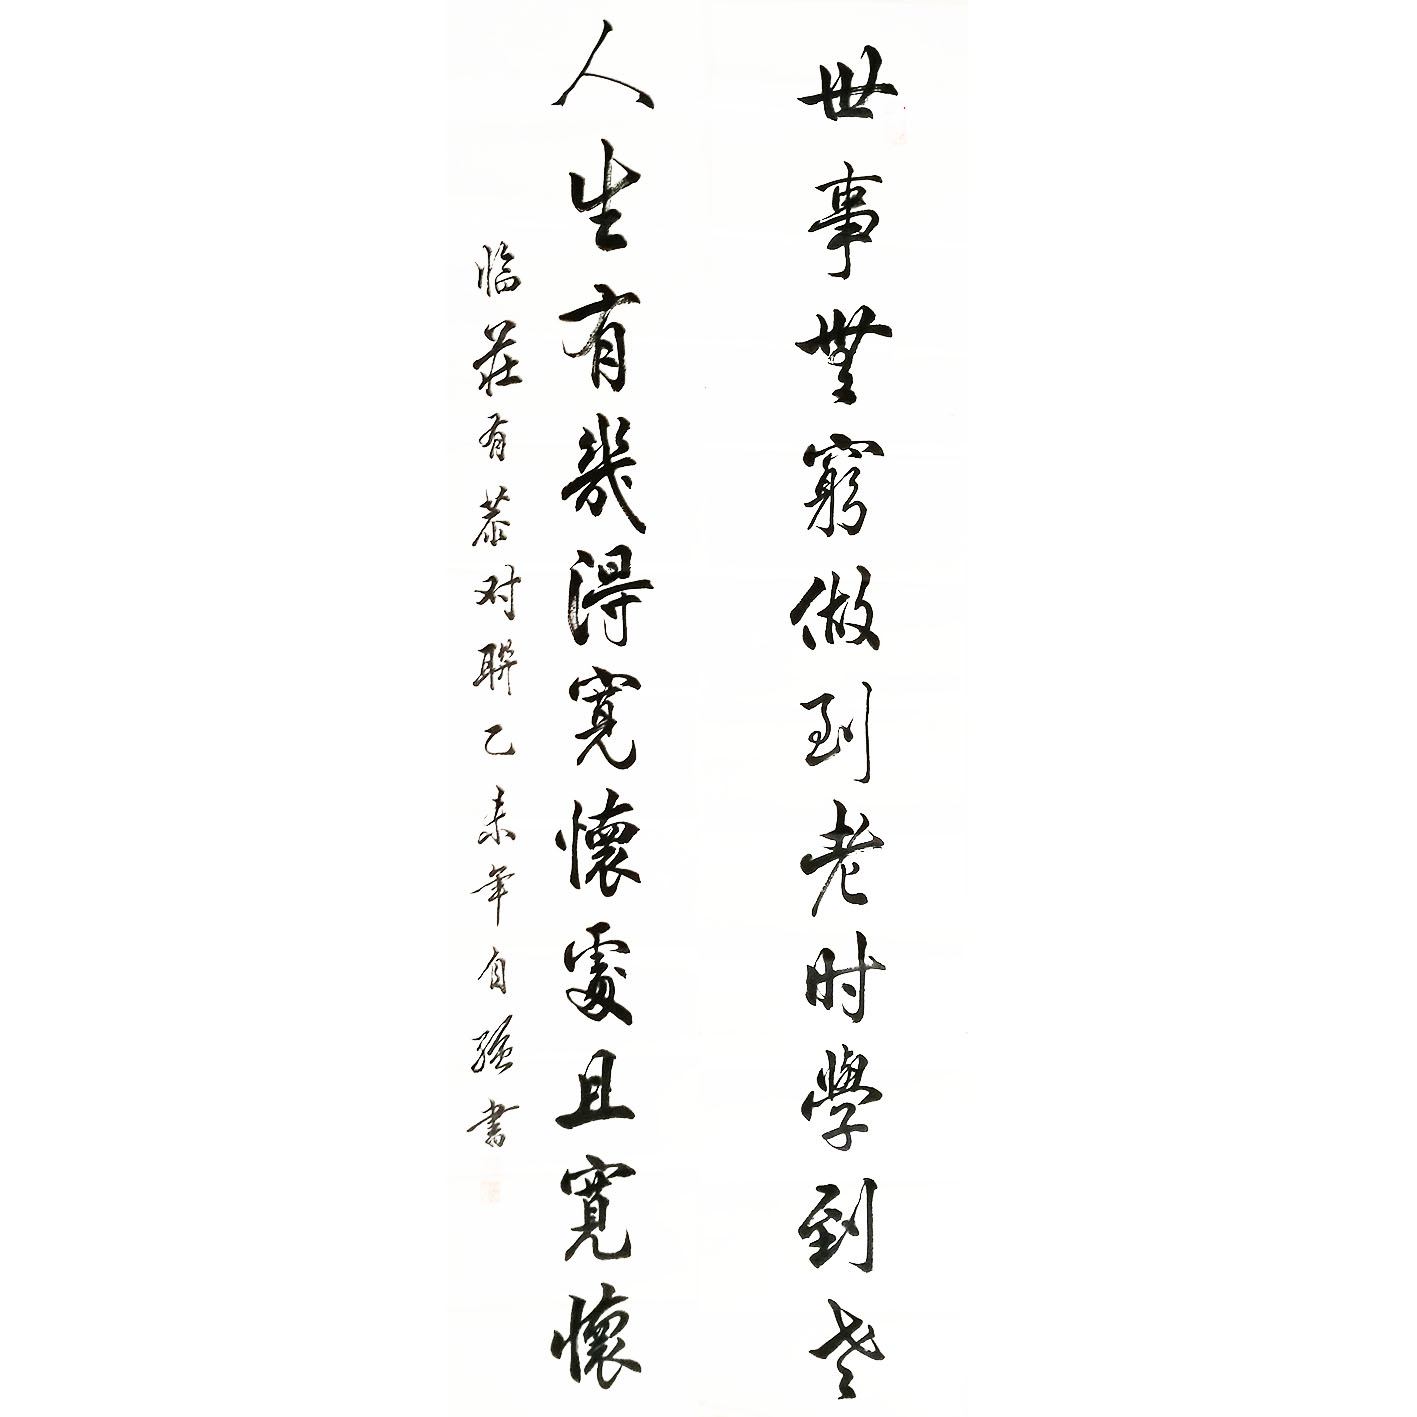 世事無窮做到老时學到老
人生有幾得寬懷處且寬懷
临莊有恭对聯乙未年自强書